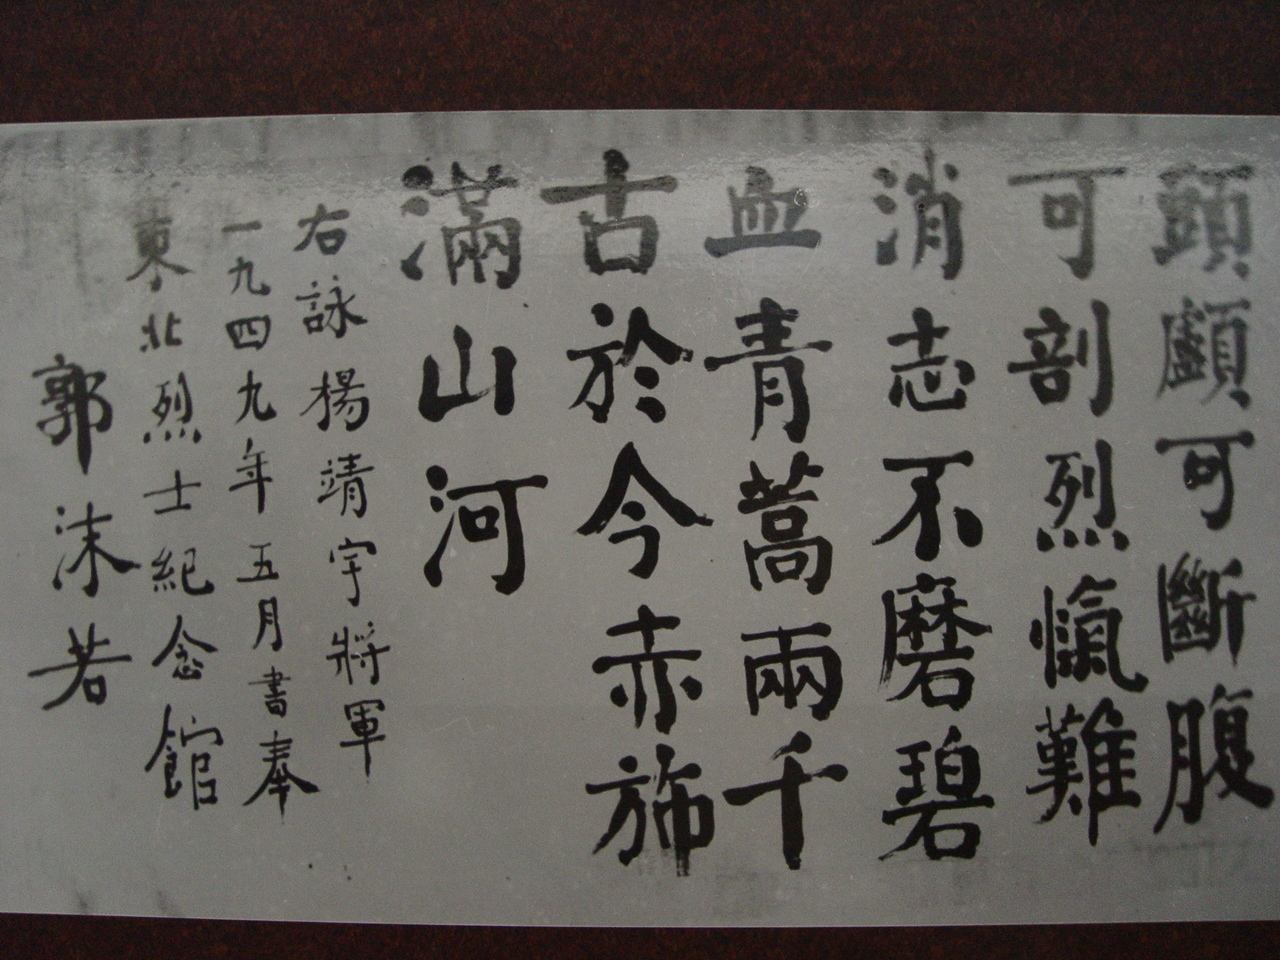 頭顱可斷腹
可剖烈愾難
消志不磨碧
血青蒿兩千
古於今赤旆
滿山河
右詠楊靖宇將軍
一九四九年五月書奉
東北烈士紀念館
郭沫若